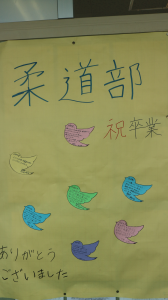 柔道部
祝卒業
ありがとう
ございました